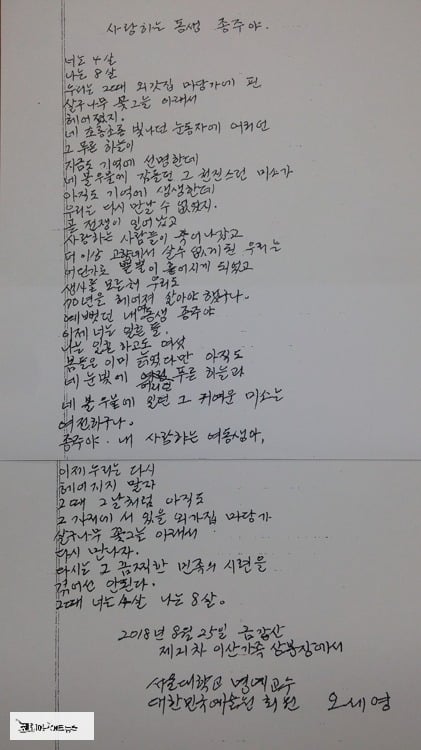 사랑하는 동생 종주야.
너는 4살
나는 8살
우리는 그때 외갓집 마당가에 핀
살구나무 꽃그늘 아래서
헤어졌지.
네 초롱초롱 빛나던 눈동자에 어리던
그 푸른 하늘이
지금도 기억에 선명한데
네 볼우물에 감돌던 그 천진스런 미소가
아직도 기억에 생생한데
우리는 다시 만날 수 없었지.
곧 전쟁이 일어났고
사랑하는 사람들이 죽어나갔고
더 이상 고향에서 살 수 없게 된 우리는
어딘가로 뿔뿔이 흩어지게 되었고
생사를 모른채 우리도
70년을 헤어져 살아야 했구나.
예뻤던 내 여동생 종주야
이제 너는 일흔 둘.
나는 일흔 하고도 여섯
몸들은 이미 늙었다만 아직도
네 눈빛에 어리던 푸른 하늘과
네 볼우물에 일던 그 귀여운 미소는
여전하구나.
종주야. 내 사랑하는 여동생아,
이제 우리는 다시
헤어지지 말자
그때 그날처럼 아직도
그 자리에 서 있을 외가집 마당가
살구나무 꽃그늘 아래서
다시 만나자.
다시는 그 끔찍한 민족의 시련을
겪어선 안된다.
그때 너는 4살 나는 8살.
2018년 8월 25일 금강산
제21차 이산가족 상봉장에서
서울대학교 명예교수
대한민국예술원 회원 오세영
코리아아트뉴스